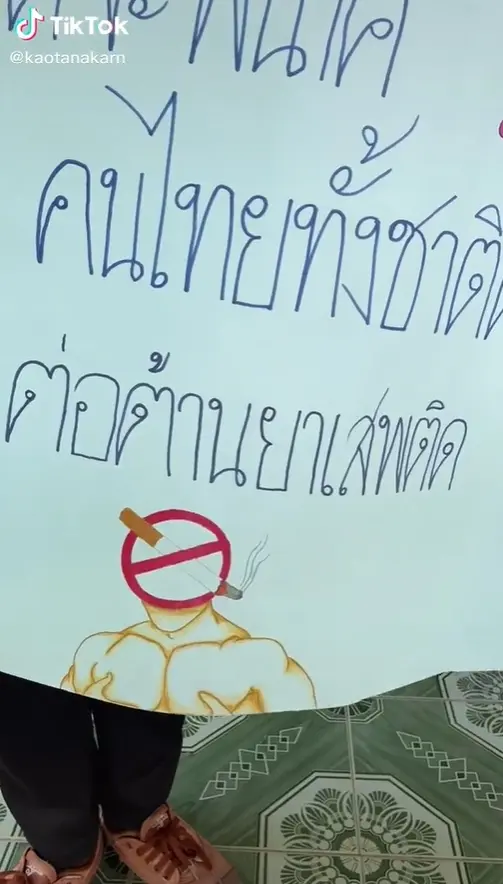 TikTok
@kaotanakarn
คนไทยทั้งชาติ
ต่อต้านยาเสพติด